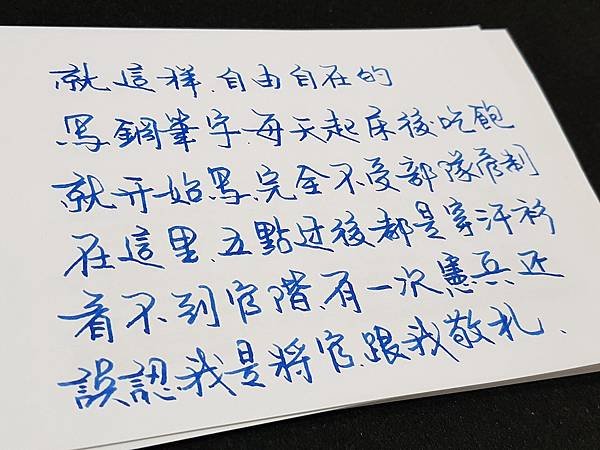 就這樣.自由自在的
寫鋼筆字.每天起床後.吃飽
就开始寫.完全不受部隊管制
在這里.五點过後都是穿汗衫
看不到官階.有一次憲兵还
誤認我是將官.跟我敬礼.